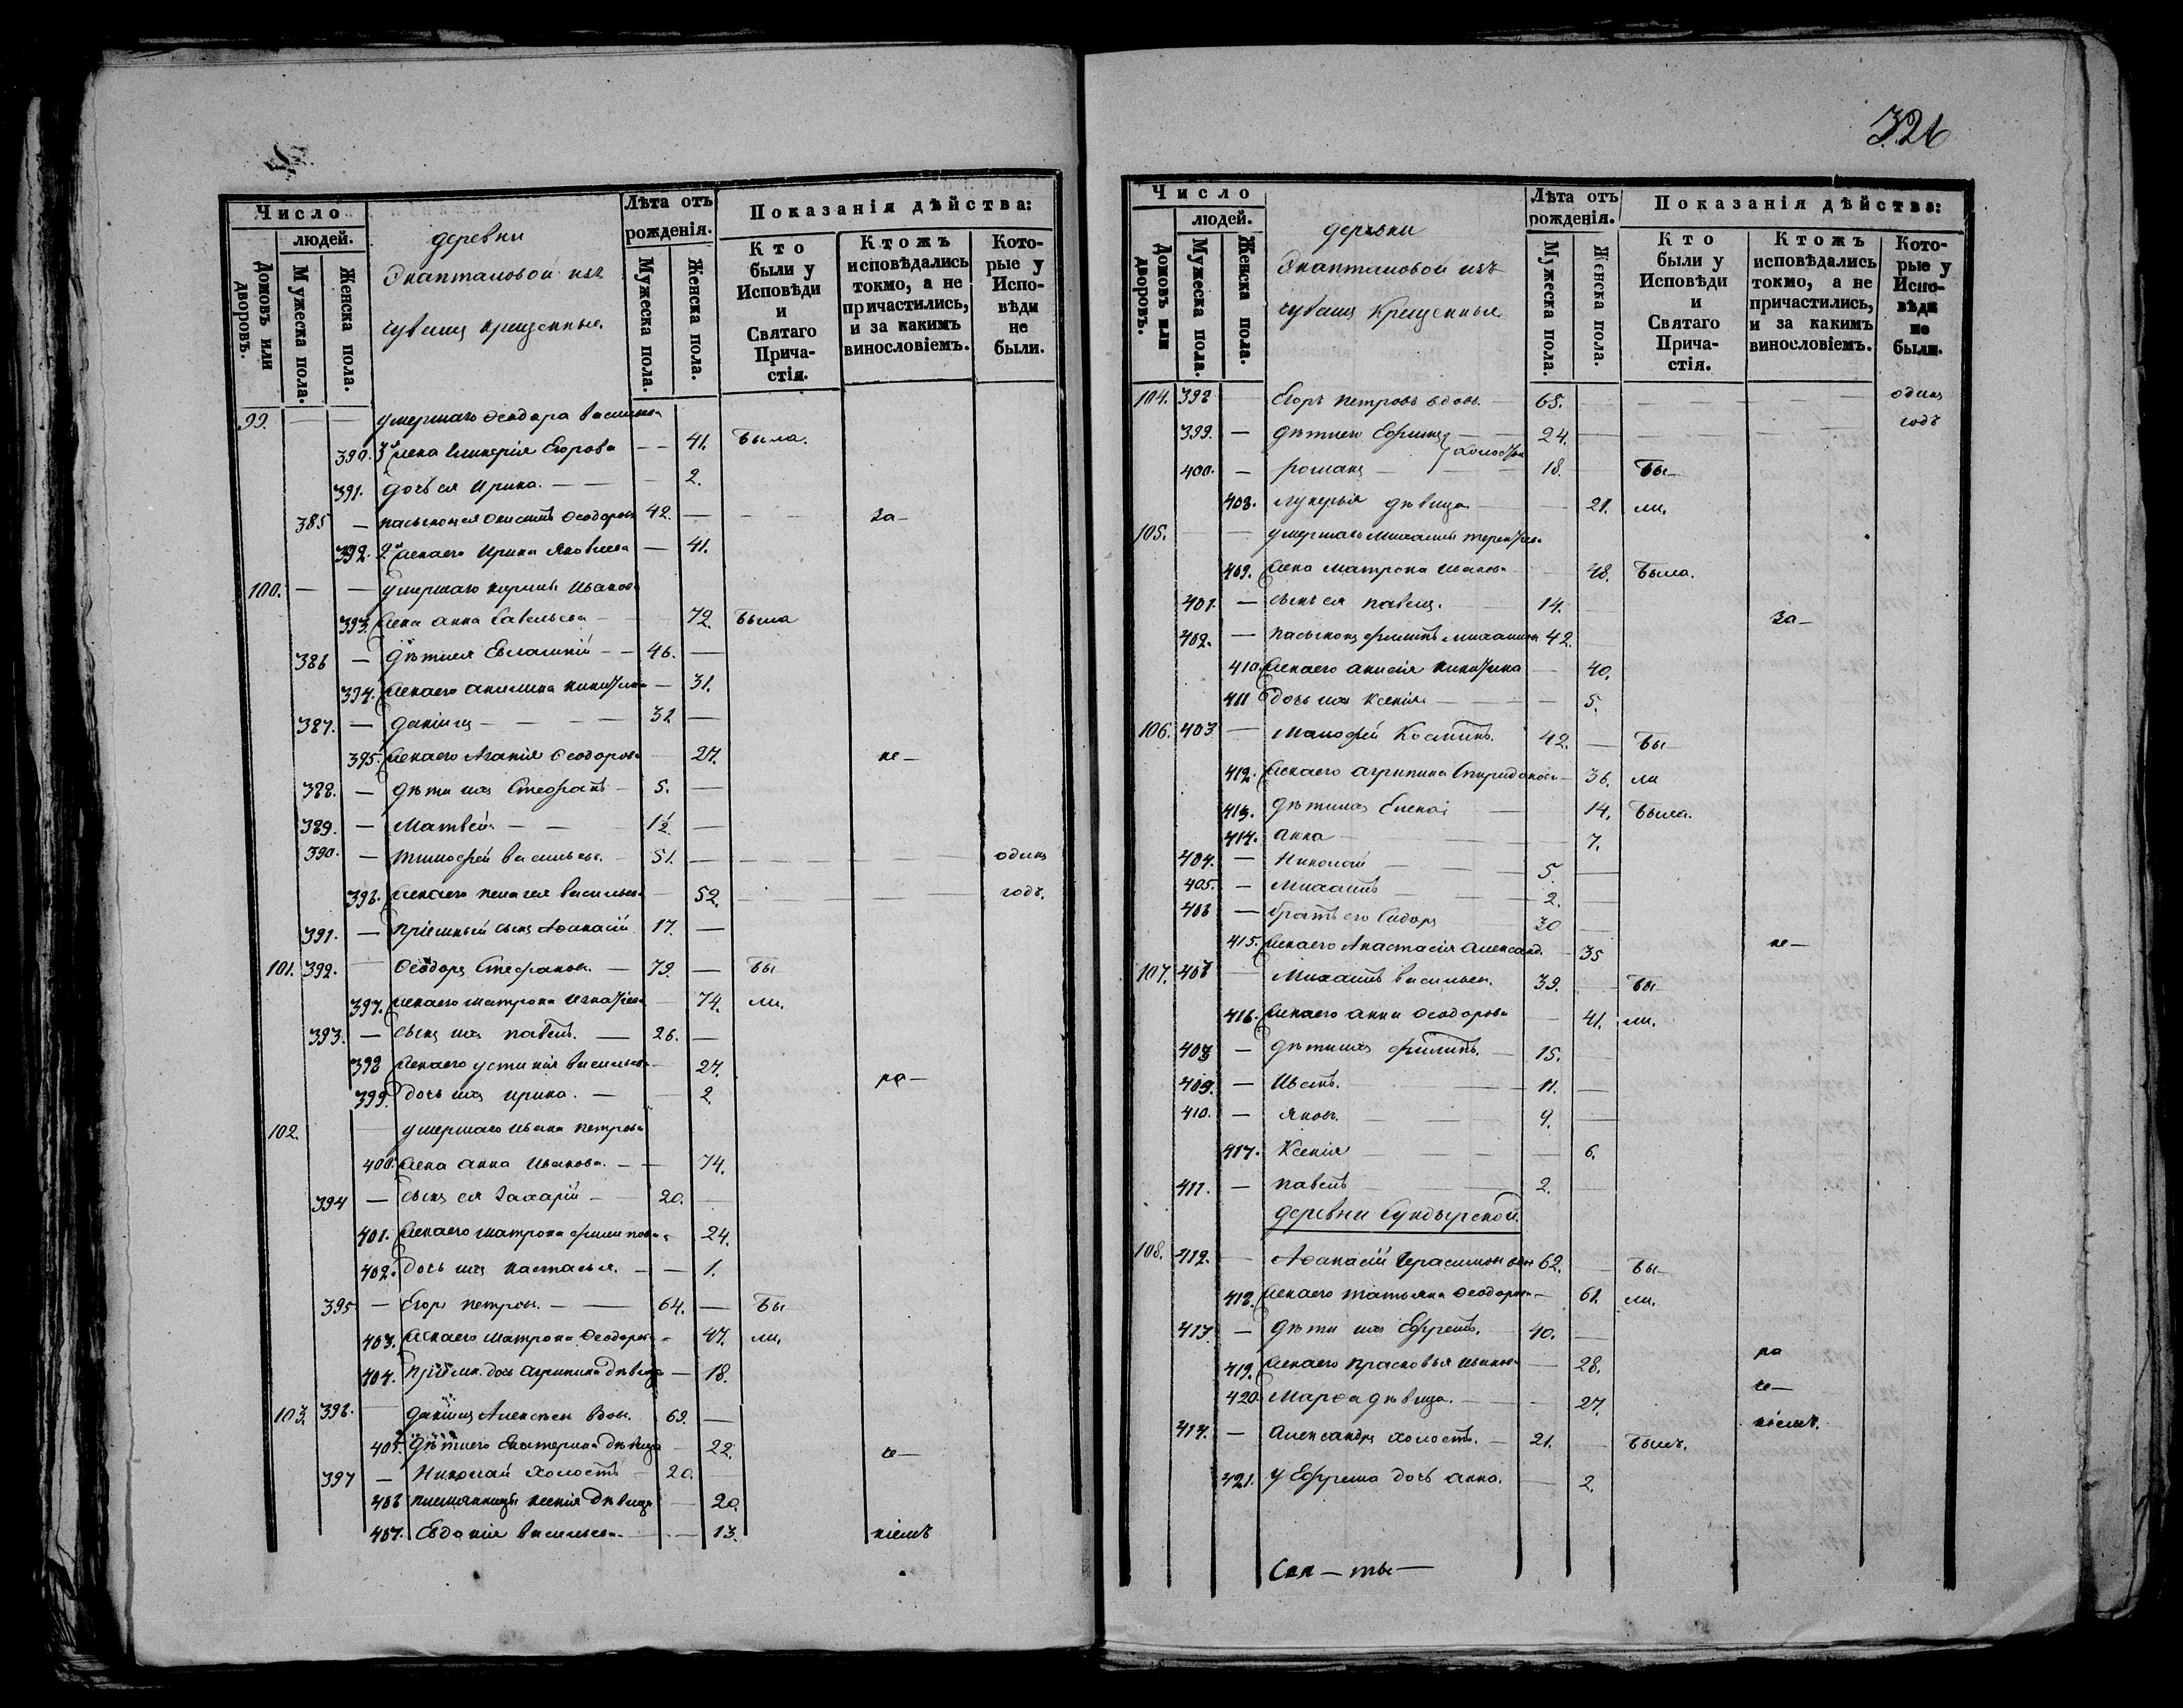 Число
людей.
Домовъ или дворовъ.
Мужеска пола.
Женска пола.
деревни
чувашъ крещенные
Лѣта отъ рожденія.
Мужеска пола.
Женска пола.
Показанія дѣйства:
Кто были у Исповѣди и Святаго Прича-стія.
Ктожъ исповѣдались токмо, а не причастились, и за какимъ винословіемъ.
Кото-рые у Испо-вѣди не были.
99. — — умершаго Ѳеодора Васильева
390. 3я жена Гликерія Егорова — — 41. была.
391. дочь ея Ирина. — — — 2.
385 — пасынокъ ея Ѳеодоровъ 42. — — — За-
392. 2я жена его Ирина Яковлева — 41.
100. — — умершаго Ивонова
393. жена Анна Савельева — 72. была
386 — дѣти ея Евлампій — — 46. —
394. жена его Акилина Никитина — 31.
387. — Даніилъ — — — — 32 —
395. жена его Агафія Ѳеодорова 27. не-
388. — дѣти ихъ Стефанъ — 5. —
389. — Матвей — — 1½. —
390. — Тимофей Васильевъ. — 51. — — — — одинъ
396. жена его Пелагея Васильева — 52. — — — годъ.
391. — пріемный сынъ Аѳанасій 17. —
101. 392. — Ѳеодоръ Стефановъ. — 79. — бы
397. жена его Матрона Игнатіева — 74. ли.
393. — сынъ ихъ Павелъ. — 26. —
398 жена его Устинія Васильева — 27.
399. дочь ихъ Ирина. — — 2. ра-
102. — умершаго Ивана Петрова
400. жена Анна Иванова. — — 74.
394 — сынъ ея Захарій — 20. —
401. жена его Матрона Филипова — 24.
402. дочь ихъ Настасья. — — 1.
395 — Егоръ Петровъ. — — 64. — бы
403. жена его Матрона Ѳеодорова — 47. ли,
404. пріемн. дочь Агрипина дѣвица — 18.
103. 396. — Даніилъ Алексѣевъ вдов. 69. —
405. дѣти его Екатерина дѣвица — 22. се-
397 — Николай холостъ — 20. —
406 племянницы Ксенія дѣвица — 20.
407. Евдокія Васильева. — — 13. ніемъ
326
Число
людей.
Домовъ или дворовъ.
Мужеска пола.
Женска пола.
деревни
чувашъ Крещенные
Лѣта отъ рожденія.
Мужеска пола.
Женска пола.
Показанія дѣйства:
Кто были у Исповѣди и Святаго Прича-стія.
Ктожъ исповѣдались токмо, а не причастились, и за какимъ винословіемъ.
Кото-рые у Испо-вѣди не были.
104. 398 — Егоръ Петровъ вдовъ. — 68. — — — — — одинъ
399. — дѣти его Ефимъ — — 24. — — — — — годъ
холосты
400. — Романъ — — 18. — бы-
408. Лукерья дѣвица. — — 21. ли.
105. — — умершаго Михаила Терентьева
409. жена Матрона Иванова — 48. была.
401. — сынъ ея Павелъ. — 14. — За-
402. — пасынокъ Филипъ Михайловъ 42.
410. жена его Анисія Никитина — 40.
411 дочь ихъ Ксенія — — — 5.
106. 403 — Косминъ. 42. — бы-
412. жена его Агрипина Спиридонова — 36. ли
413. дѣти ихъ Елена — 14. была.
414. Анна — — 7.
404. — Николай — — 5. —
405. — Михаилъ — — 2. —
406 — братъ его Сидоръ 30 —
415. жена его Анастасія Александ. — 35 не-
107. 407 — Михаилъ Васильевъ. 39. — бы-
416. жена его Анна Ѳеодорова — 41. ли.
408 — дѣти ихъ Филипъ. — 15. —
409. — Иванъ. — — 11. —
410. — Яковъ. — — — 9. —
417. Ксенія — — — — 6.
411. — Павелъ — — 2. —
деревни Сундырской.
108. 412. — Аѳанасій Герасимовъ 62. — бы-
418. жена его Татьяна Ѳеодорова — 61. ли.
413. — дѣти ихъ Ефремъ. — 40. —
419. жена его Прасковья Иванова — 28. ра
420. Марѳа дѣвица. — — 27. се-
414. — Александръ холостъ. — 21. — былъ. ніемъ.
421. у Ефрема дочь Анна. — 2.